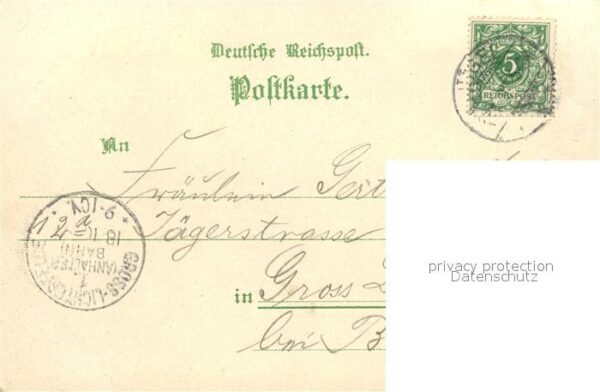 Deutsche Reichspost.
Postkarte.
5
REICHSPOST
An
Fräulein Gert
Jägerstrasse
in Gross L
bei B
GROSS-LICHTERFELDE
(ANHALTER
BAHN)
18 11
9-10V.
1
privacy protection
Datenschutz